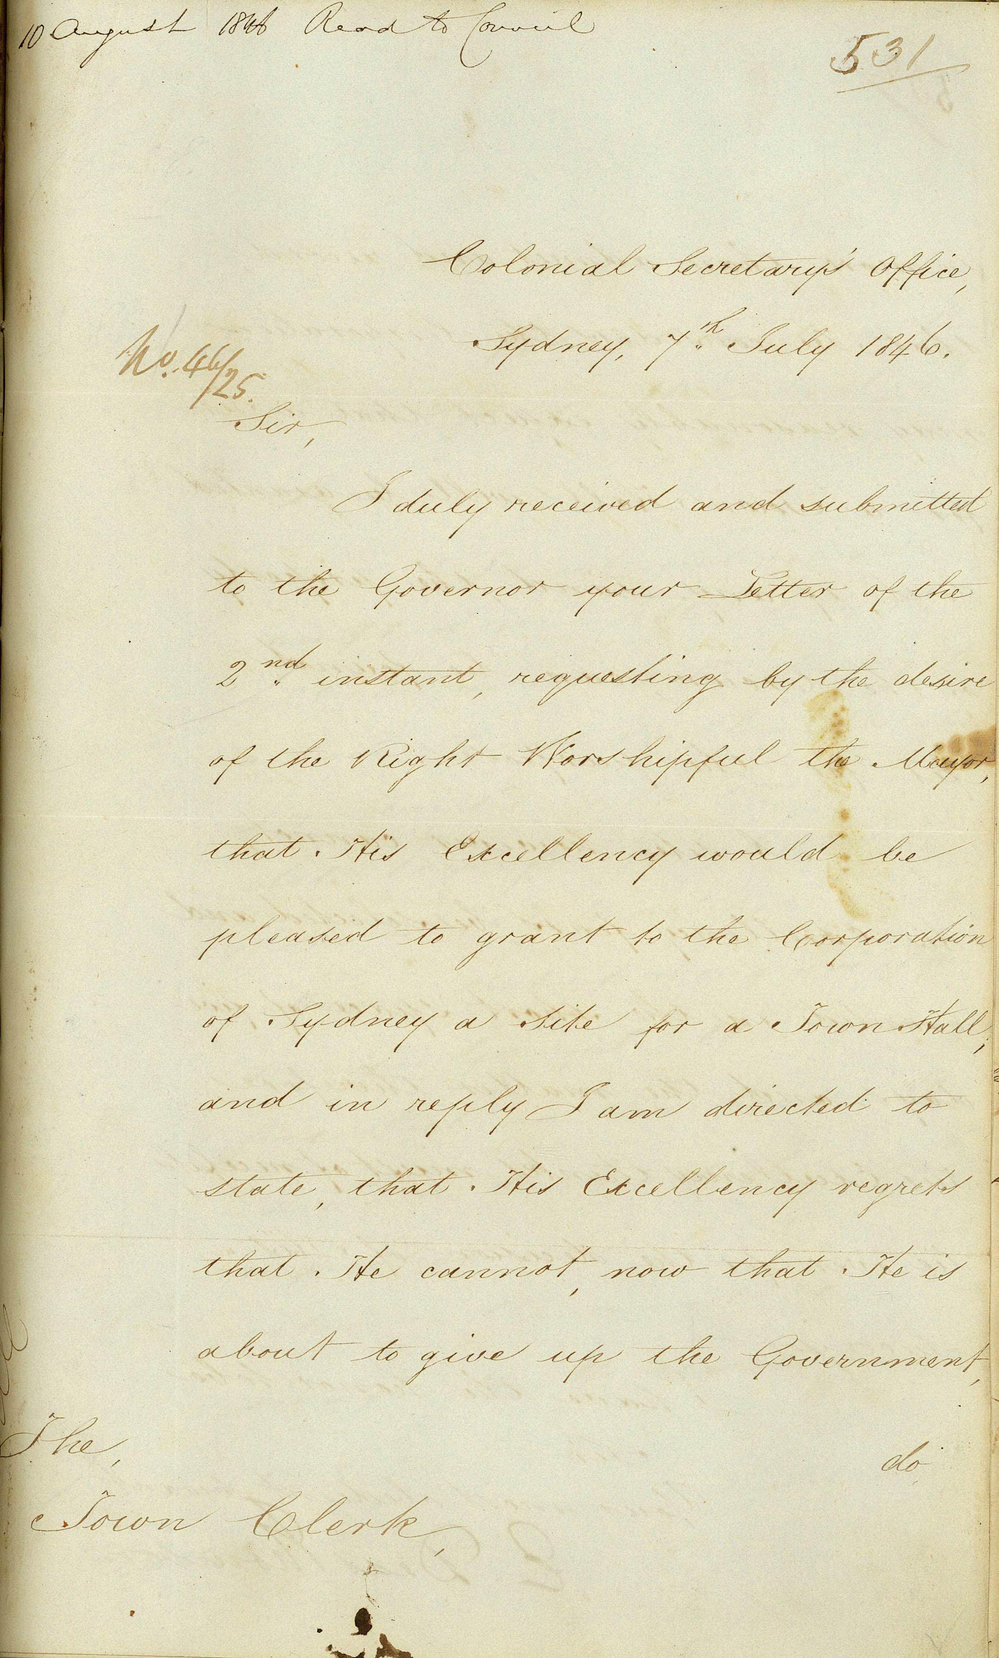 10 August 1846 Read to Council
531
Colonial Secretary's Office,
Sydney, 7th July 1846.
No. 46/25.
Sir,
I duly received and submitted
to the Governor your Letter of the
2nd instant, requesting by the desire
of the Right Worshipful the Mayor,
that His Excellency would be
pleased to grant to the Corporation
of Sydney a site for a Town Hall,
and in reply I am directed to
state, that His Excellency regrets
that He cannot, now that He is
about to give up the Government,
do
The,
Town Clerk,